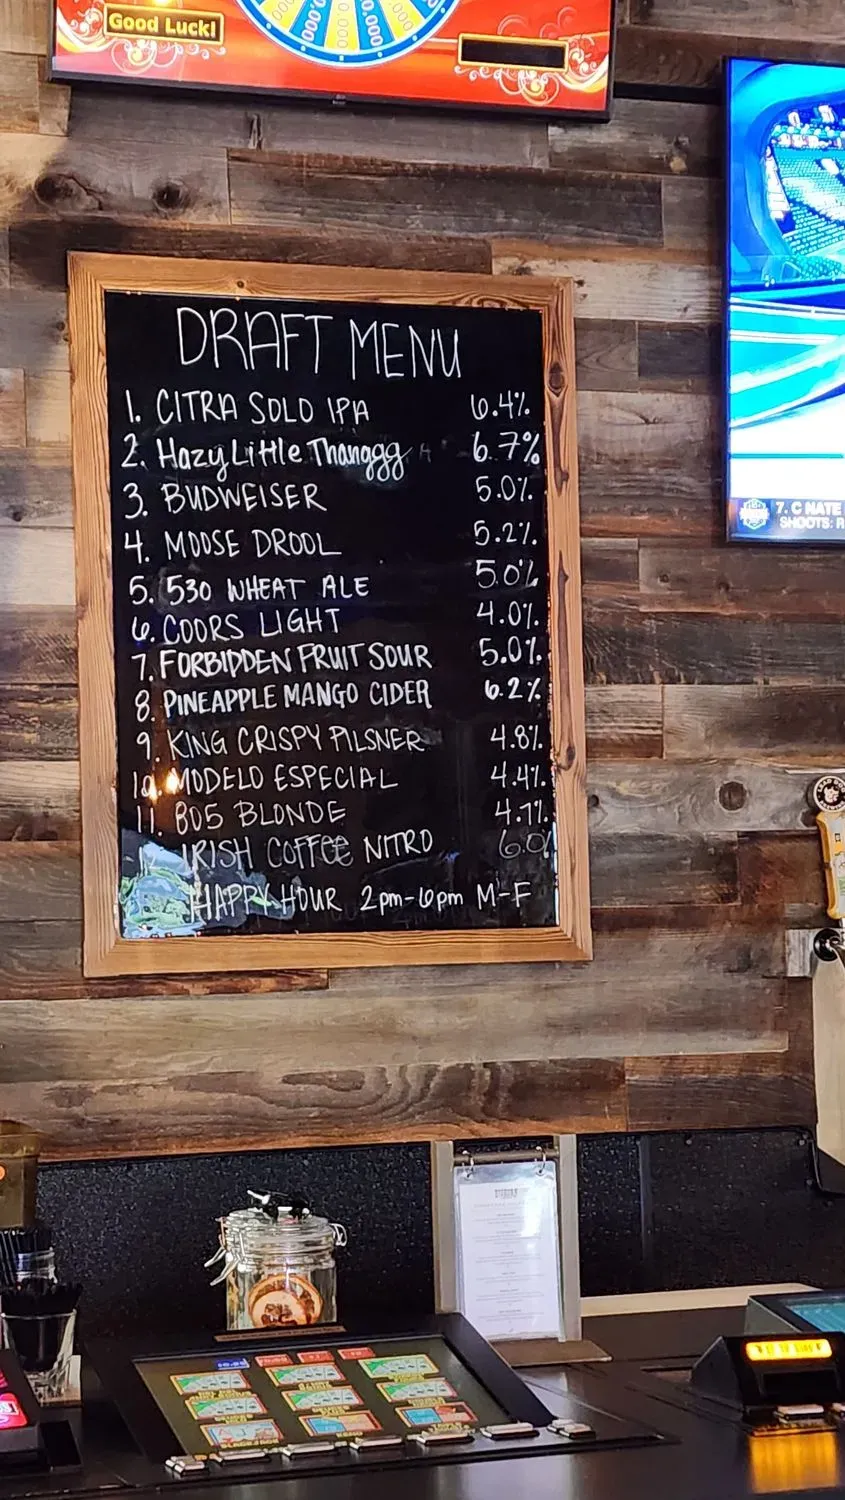 Good Luck!
DRAFT MENU
1. CITRA SOLO IPA 6.4%
2. Hazy Little Thanggg 6.7%
3. BUDWEISER 5.0%
4. MOOSE DROOL 5.2%
5. 530 WHEAT ALE 5.0%
6. COORS LIGHT 4.0%
7. FORBIDDEN FRUIT SOUR 5.0%
8. PINEAPPLE MANGO CIDER 6.2%
9. KING CRISPY PILSNER 4.8%
10. MODELO ESPECIAL 4.4%
11. 805 BLONDE 4.7%
IRISH COFFEE NITRO 6.0%
HAPPY HOUR 2pm-6pm M-F
7. C NATE
SHOOTS: R